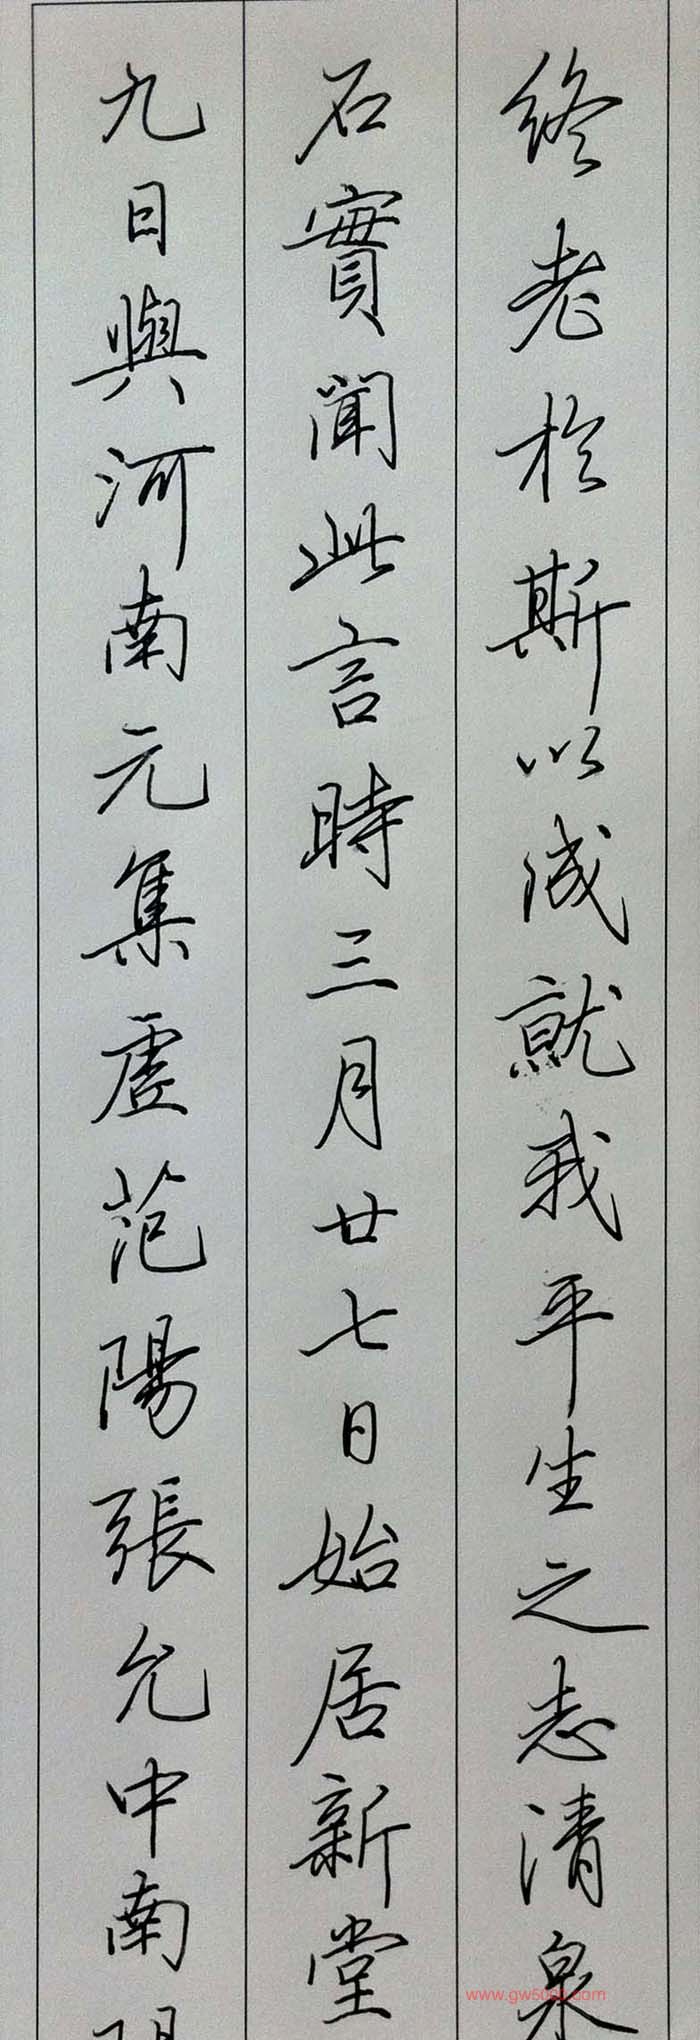 終老於斯以成就我平生之志清泉
石實聞此言時三月廿七日始居新堂
九日與河南元集虛范陽張允中南陽
www.gw5000.com